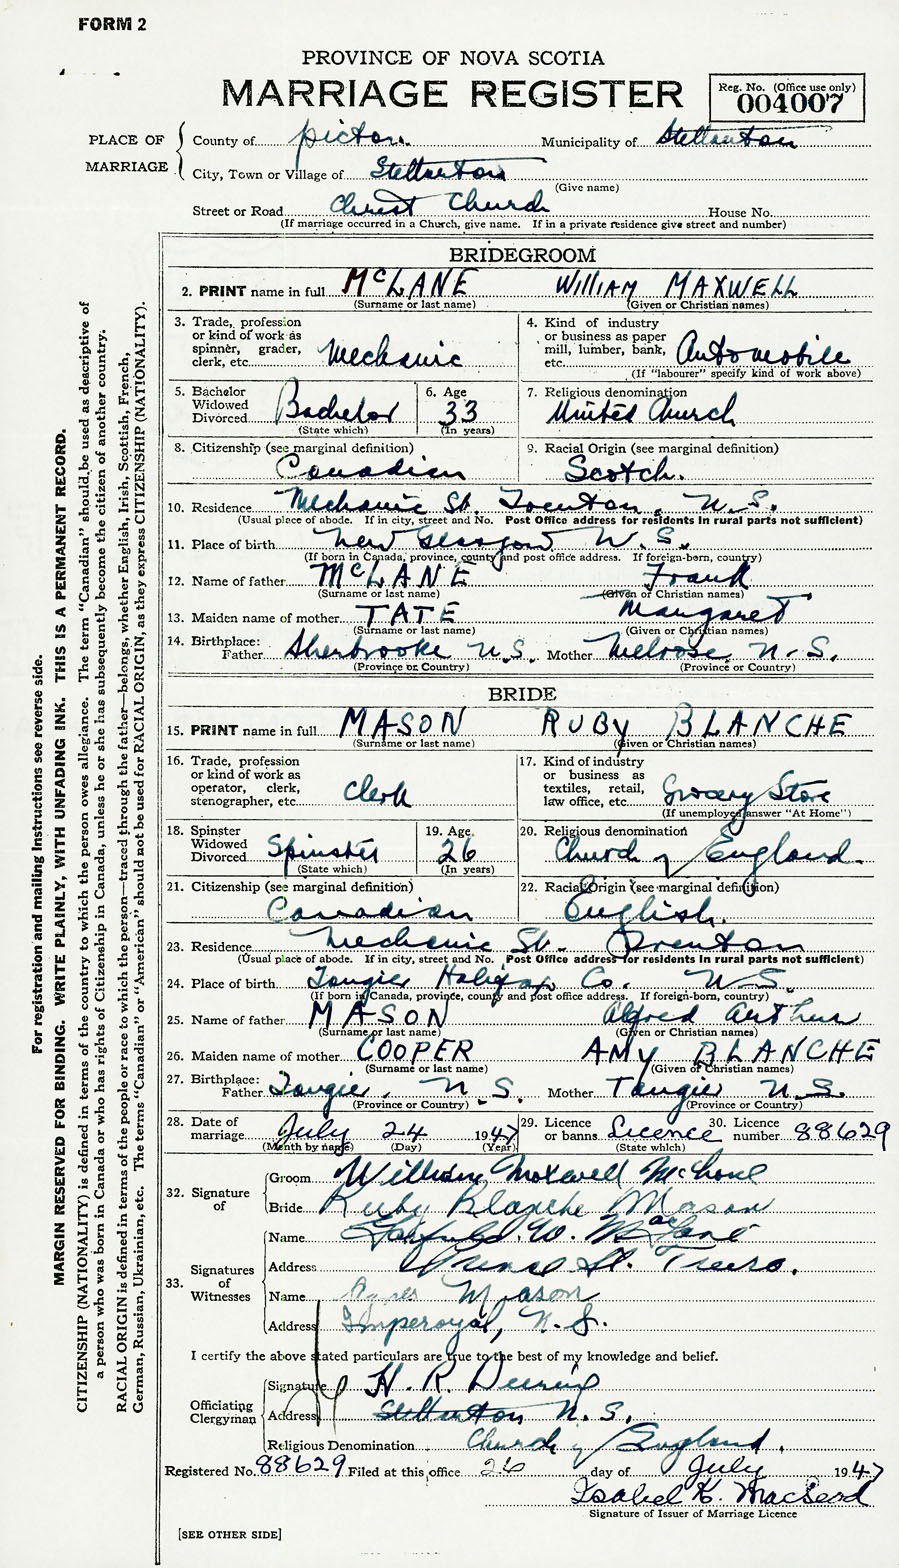 FORM 2
PROVINCE OF NOVA SCOTIA
MARRIAGE REGISTER
Reg. No. (Office use only)
004007
PLACE OF MARRIAGE
County of Pictou Municipality of Stellarton
City, Town or Village of Stellarton
(Give name)
Street or Road Christ Church House No.
(If marriage occurred in a Church, give name. If in a private residence give street and number)
BRIDEGROOM
2. PRINT name in full McLANE WILLIAM MAXWELL
(Surname or last name) (Given or Christian names)
3. Trade, profession or kind of work as spinner, grader, clerk, etc. Mechanic
4. Kind of industry or business as paper mill, lumber, bank, etc. Automobile
(If "labourer" specify kind of work above)
5. Bachelor Widowed Divorced Bachelor
(State which)
6. Age 33
(In years)
7. Religious denomination
United Church
8. Citizenship (see marginal definition)
Canadian
9. Racial Origin (see marginal definition)
Scotch.
10. Residence Mechanic St. Trenton, N.S.
(Usual place of abode. If in city, street and No. Post Office address for residents in rural parts not sufficient)
11. Place of birth New Glasgow N.S.
(If born in Canada, province, county and post office address. If foreign-born, country)
12. Name of father McLANE Frank
(Surname or last name) (Given or Christian names)
13. Maiden name of mother TATE Margaret
(Surname or last name) (Given or Christian names)
14. Birthplace: Father Sherbrooke N.S. Mother Melrose N.S.
(Province or Country) (Province or Country)
BRIDE
15. PRINT name in full MASON RUBY BLANCHE
(Surname or last name) (Given or Christian names)
16. Trade, profession or kind of work as operator, clerk, stenographer, etc. Clerk
17. Kind of industry or business as textiles, retail, law office, etc. Grocery Store
(If unemployed answer "At Home")
18. Spinster Widowed Divorced Spinster
(State which)
19. Age 26
(In years)
20. Religious denomination
Church of England.
21. Citizenship (see marginal definition)
Canadian
22. Racial Origin (see marginal definition)
English.
23. Residence Mechanic St. Trenton
(Usual place of abode. If in city, street and No. Post Office address for residents in rural parts not sufficient)
24. Place of birth Tangier Halifax Co. N.S.
(If born in Canada, province, county and post office address. If foreign-born, country)
25. Name of father MASON Alfred Arthur
(Surname or last name) (Given or Christian names)
26. Maiden name of mother COOPER AMY BLANCHE
(Surname or last name) (Given or Christian names)
27. Birthplace: Father Tangier, N.S. Mother Tangier N.S.
(Province or Country) (Province or Country)
28. Date of marriage July 24 1947
(Month by name) (Day) (Year)
29. Licence or banns Licence
(State which)
30. Licence number 88629
32. Signature of
Groom William Maxwell McLane
Bride Ruby Blanche Mason
33. Signatures of Witnesses
Name W. MacLane
Address Prince St. Truro.
Name Agnes Mason
Address Imperoyal, N.S.
I certify the above stated particulars are true to the best of my knowledge and belief.
Officiating Clergyman
Signature H. R. Deering
Address Stellarton N.S.
Religious Denomination Church of England.
Registered No. 88629 Filed at this office 26 day of July 1947
Isabel K. MacLeod
Signature of Issuer of Marriage Licence
[SEE OTHER SIDE]
For registration and mailing instructions see reverse side.
MARGIN RESERVED FOR BINDING. WRITE PLAINLY, WITH UNFADING INK. THIS IS A PERMANENT RECORD.
CITIZENSHIP (NATIONALITY) is defined in terms of the country to which the person owes allegiance. The term "Canadian" should be used as descriptive of
a person who was born in Canada or who has rights of Citizenship in Canada, unless he or she has subsequently become the citizen of another country.
RACIAL ORIGIN is defined in terms of the people or race to which the person—traced through the father—belongs, whether English, Irish, Scottish, French,
German, Russian, Ukrainian, etc. The terms "Canadian" or "American" should not be used for RACIAL ORIGIN, as they express CITIZENSHIP (NATIONALITY).